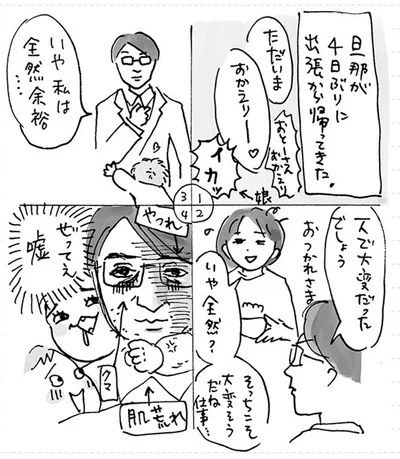 旦那が
4日ぶりに
出張から帰ってきた。
ただいま
おかえりー♡
おとーさん
おかえり
イカッ
←娘
3 1
4 2
一人で大変だった
でしょう
おつかれさま
いや全然?
そっちこそ
大変そう
だね
仕事…
いや私は
全然余裕
…
やつれ
ぜってえ
嘘
クマ
肌荒れ